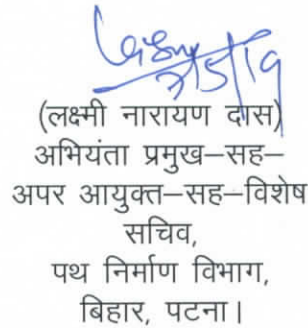 (लक्ष्मी नारायण दास)
अभियंता प्रमुख–सह–
अपर आयुक्त–सह–विशेष
सचिव,
पथ निर्माण विभाग,
बिहार, पटना।